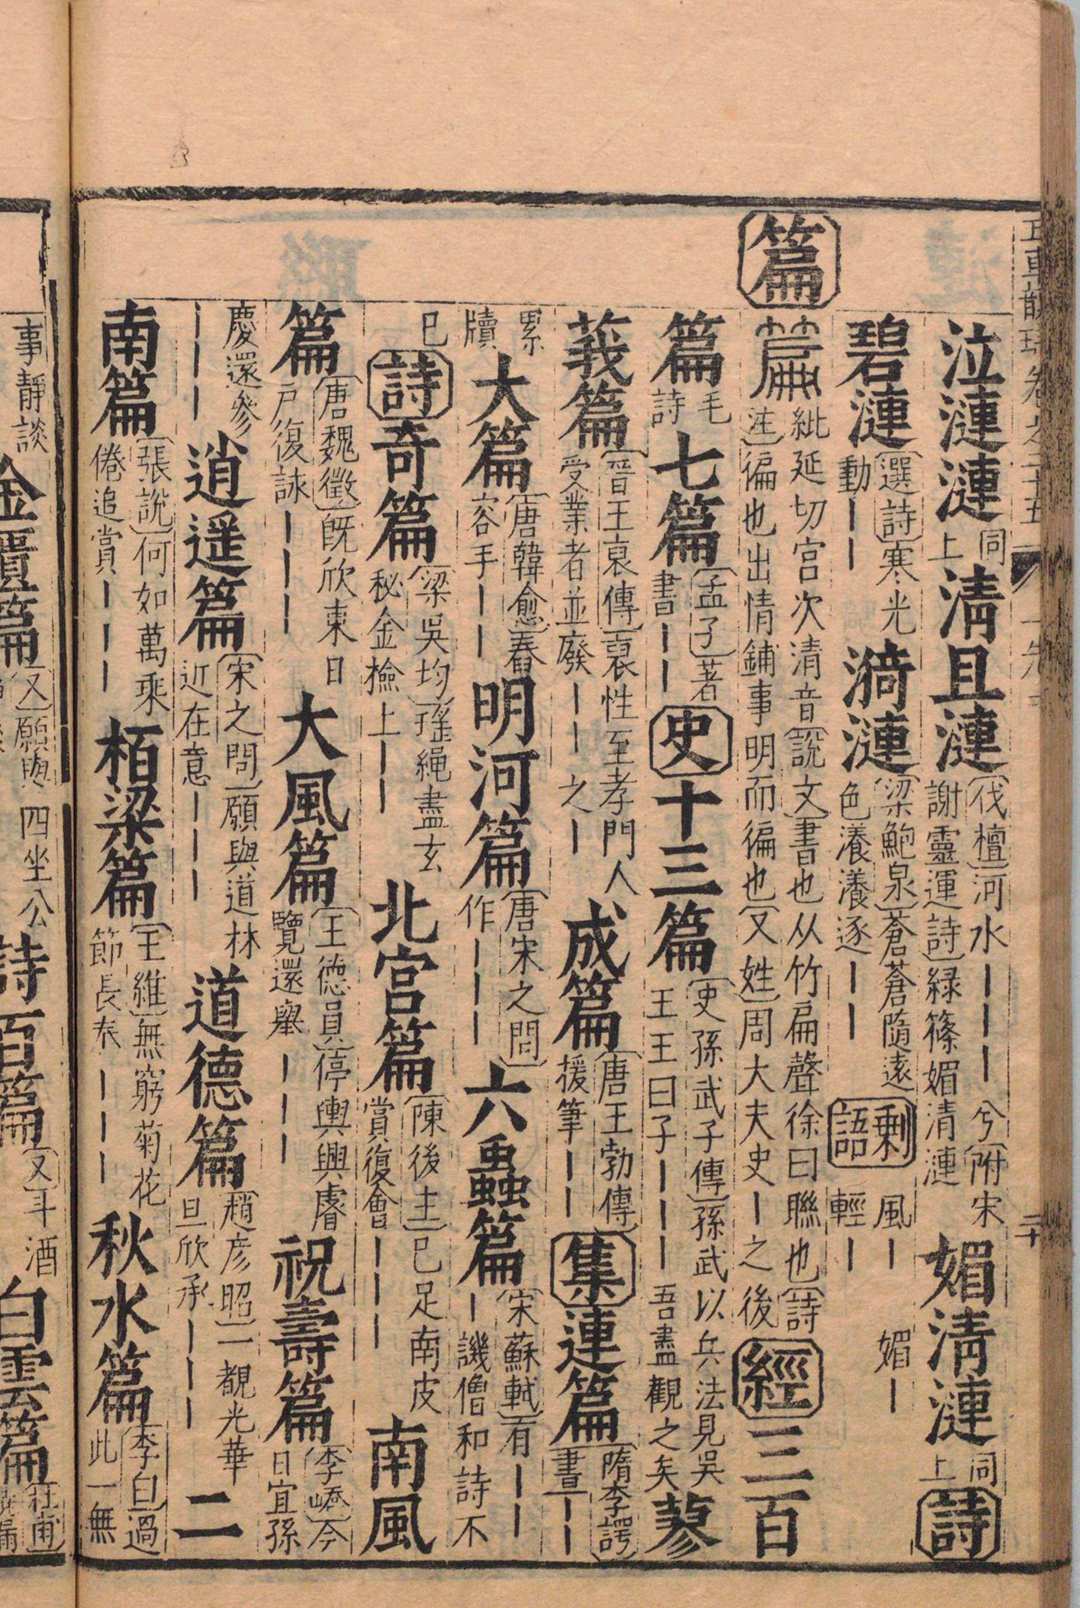 泣漣漣同上清且漣伐檀河水｜｜｜兮附宋謝靈運詩緑篠媚清漣媚清漣同上詩
碧漣選詩寒光動｜｜漪漣梁鮑泉蒼蒼隨遠色瀁瀁逐｜｜剩語風｜輕｜媚｜
篇紕延切宮次清音説文書也从竹扁聲徐曰聯也詩箋徧也出情鋪事明而徧也又姓周大夫史｜之後經三百
篇毛詩七篇孟子著書｜｜史十三篇史孫武子傳孫武以兵法見吳王王曰子｜｜｜吾盡觀之矣蓼
莪篇晉王裒傳裒性至孝門人受業者並廢｜｜之｜成篇唐王勃傳援筆｜｜集連篇隋李諤書｜｜
累牘大篇唐韓愈春容乎｜｜明河篇唐宋之問作｜｜｜六蟲篇宋蘇軾有｜｜｜譏僧和詩不
已詩奇篇梁吳均瑤繩盡玄秘金檢上｜｜北宫篇陳後主已足南皮賞復會｜｜｜南風
篇唐魏徵既欣東日戶復詠｜｜｜大風篇王德員停輿興睿覽還舉｜｜｜祝壽篇李嶠今日宜孫
慶還參｜｜｜逍遥篇宋之問願與道林近在意｜｜｜道德篇趙彦昭一覩光華旦欣承｜｜｜二
南篇張說何如萬乘倦追賞｜｜｜栢梁篇王維無窮菊花節長奉｜｜｜秋水篇李白過此一無
事靜談
金匱篇又願與
四坐公
詩百篇又斗酒
白雲篇杜甫